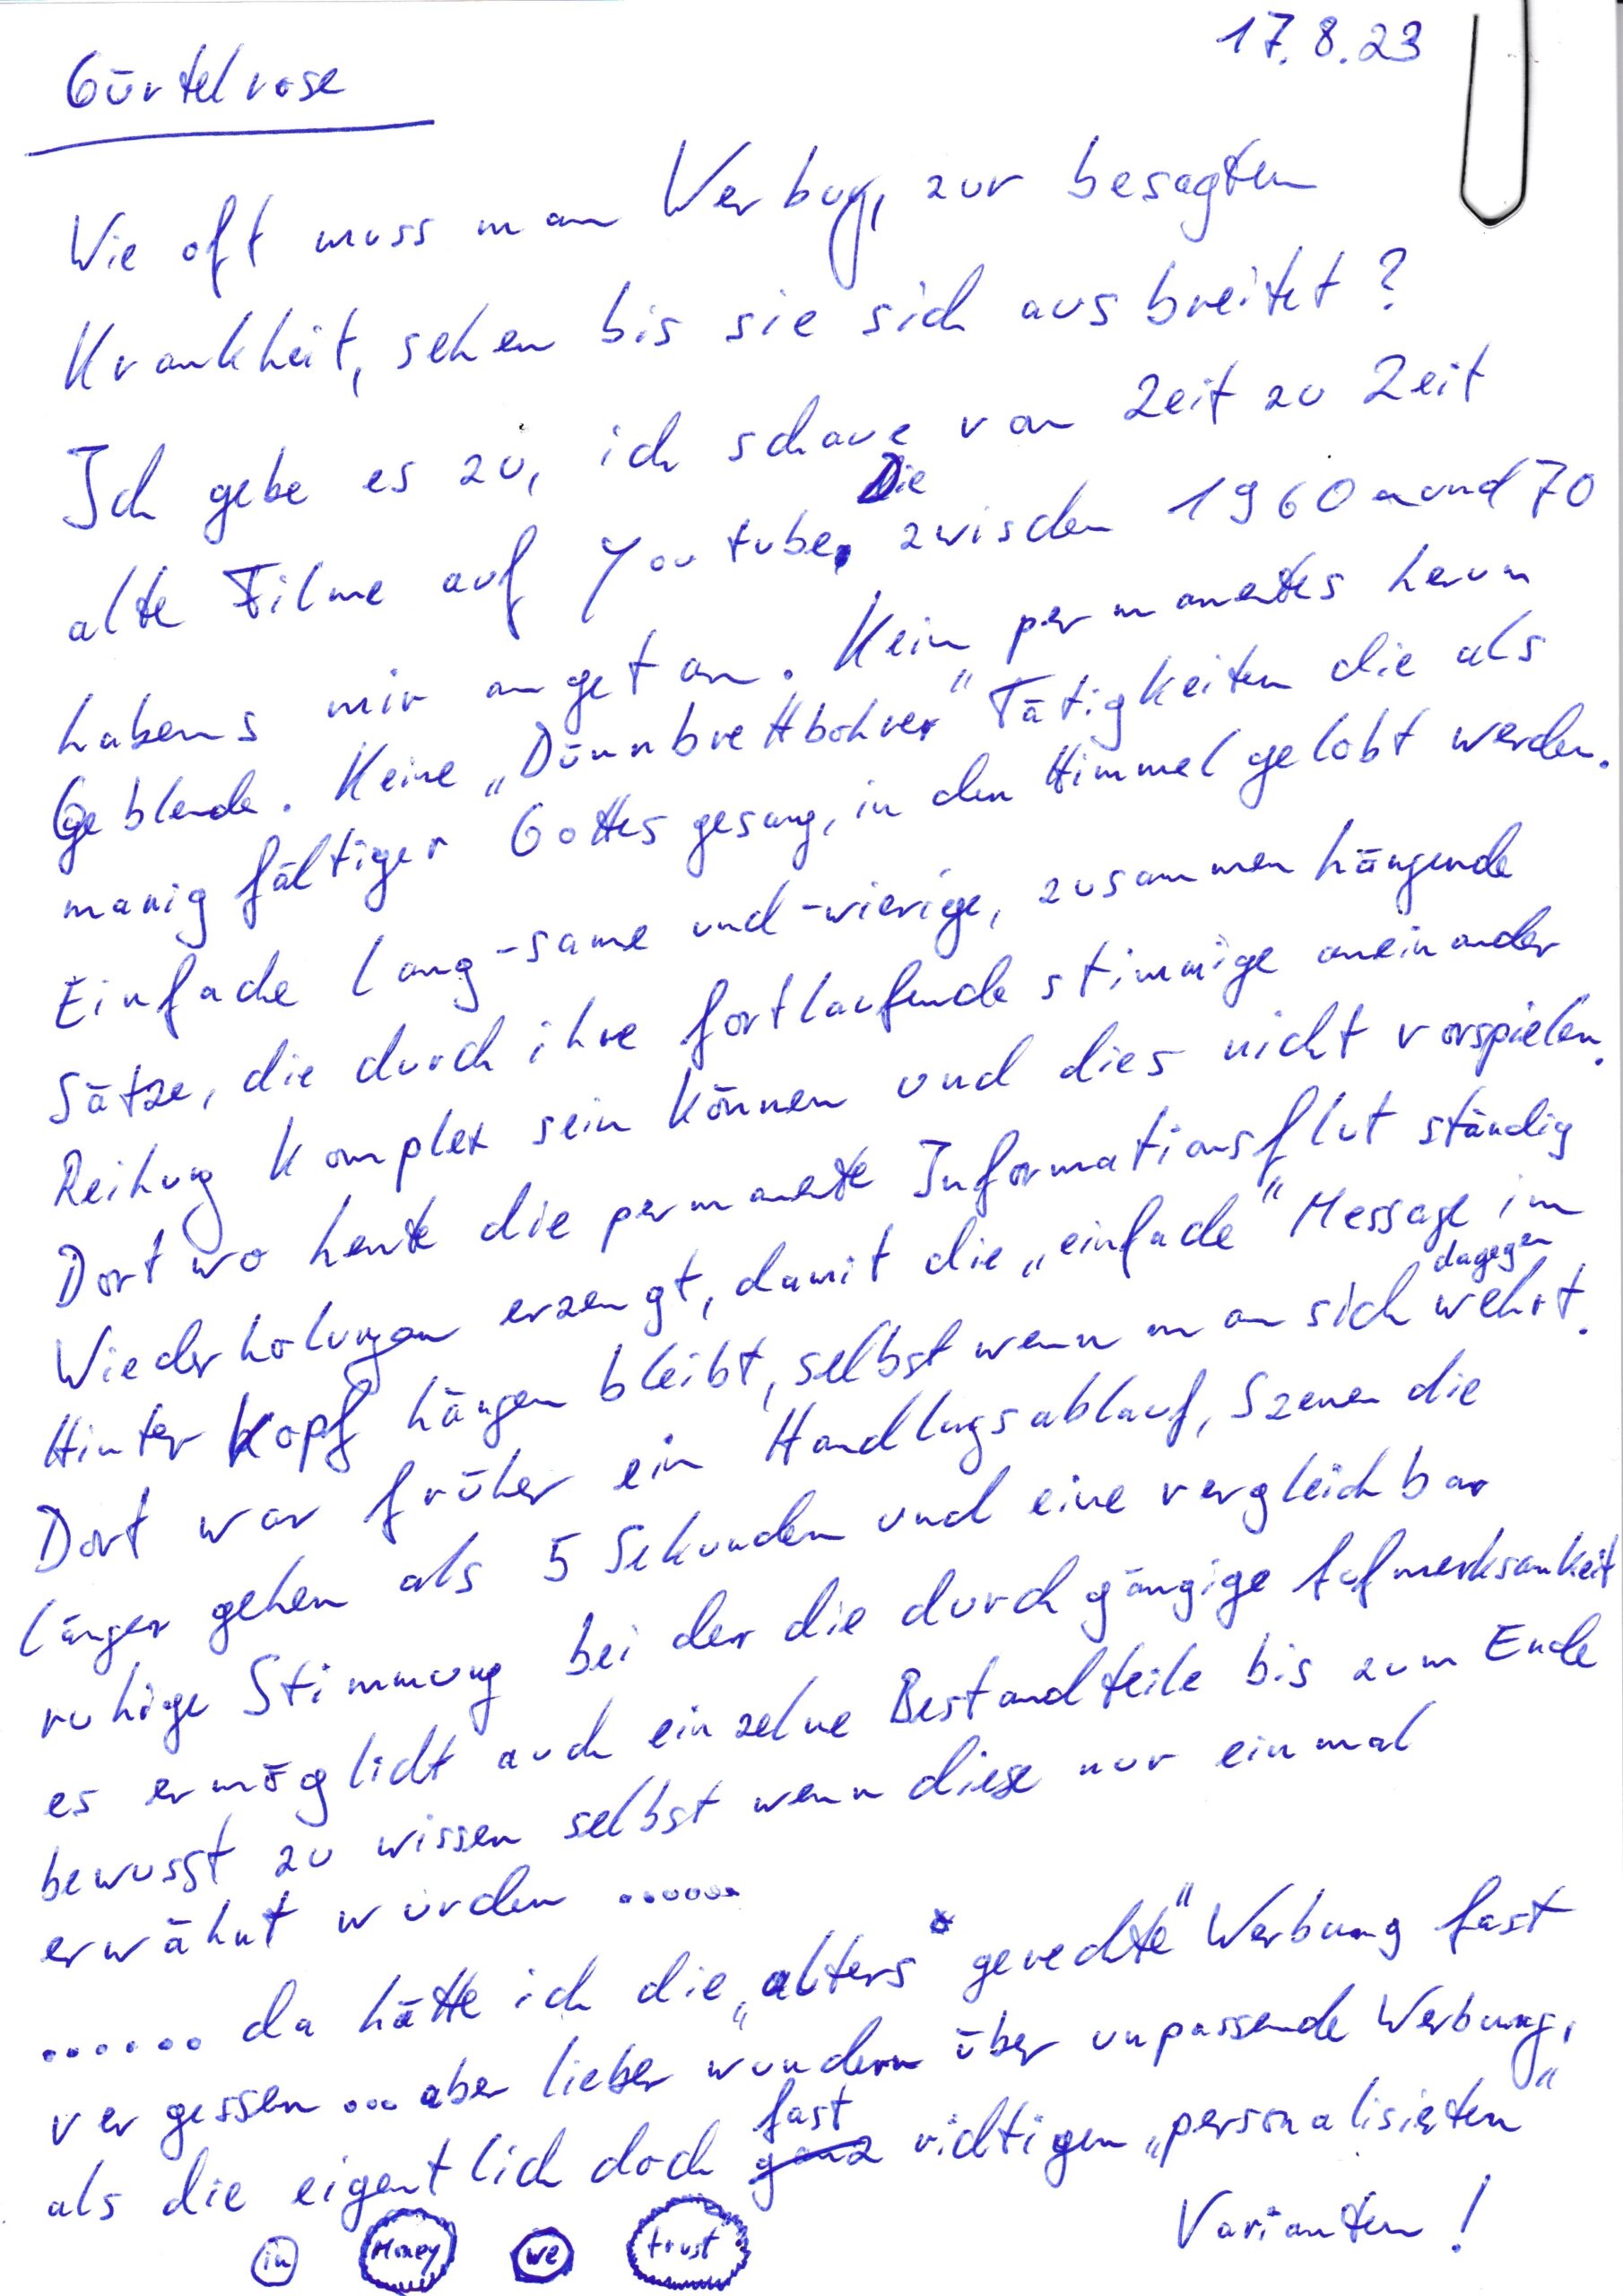 17.8.23
Gürtelrose
Wie oft muss man Werbung, zur besagten
Krankheit, sehen bis sie sich ausbreitet?
Ich gebe es zu, ich schaue von Zeit zu Zeit
alte Filme auf Youtube, Die zwischen 1960 und 70
habens mir angetan. Kein permanentes herum
Geblende. Keine „Dünnbrettbohrer" Tätigkeiten die als
manigfältiger Gottesgesang, in den Himmel gelobt werden.
Einfache lang-same und -wierige, zusammenhängende
Sätze, die durch ihre fortlaufende stimmige aneinander
Reihung komplex sein können und dies nicht vorspielen.
Dort wo heute die permanente Informationsflut ständig
Wiederholungen erzeugt, damit die „einfache" Message im
Hinterkopf hängen bleibt, selbst wenn man sich dagegen wehrt.
Dort war früher ein Handlungsablauf, Szenen die
länger gehen als 5 Sekunden und eine vergleichbar
ruhige Stimmung bei der die durchgängige Aufmerksamkeit
es ermöglicht auch einzelne Bestandteile bis zum Ende
bewusst zu wissen selbst wenn diese nur einmal
erwähnt würden .......
....... da hätte ich die „alters*gerechte" Werbung fast
vergessen ... aber lieber wundern über unpassende Werbung,
als die eigentlich doch ganz fast richtigen „personalisierten"
Varianten!
in Money we trust